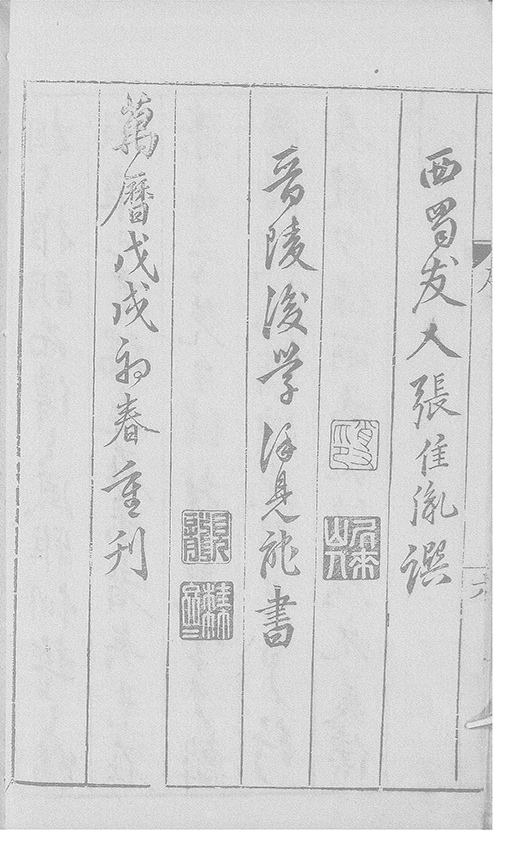 西蜀友人張佳胤撰
晉陵後學徐見龍書
萬曆戊戌初春重刊